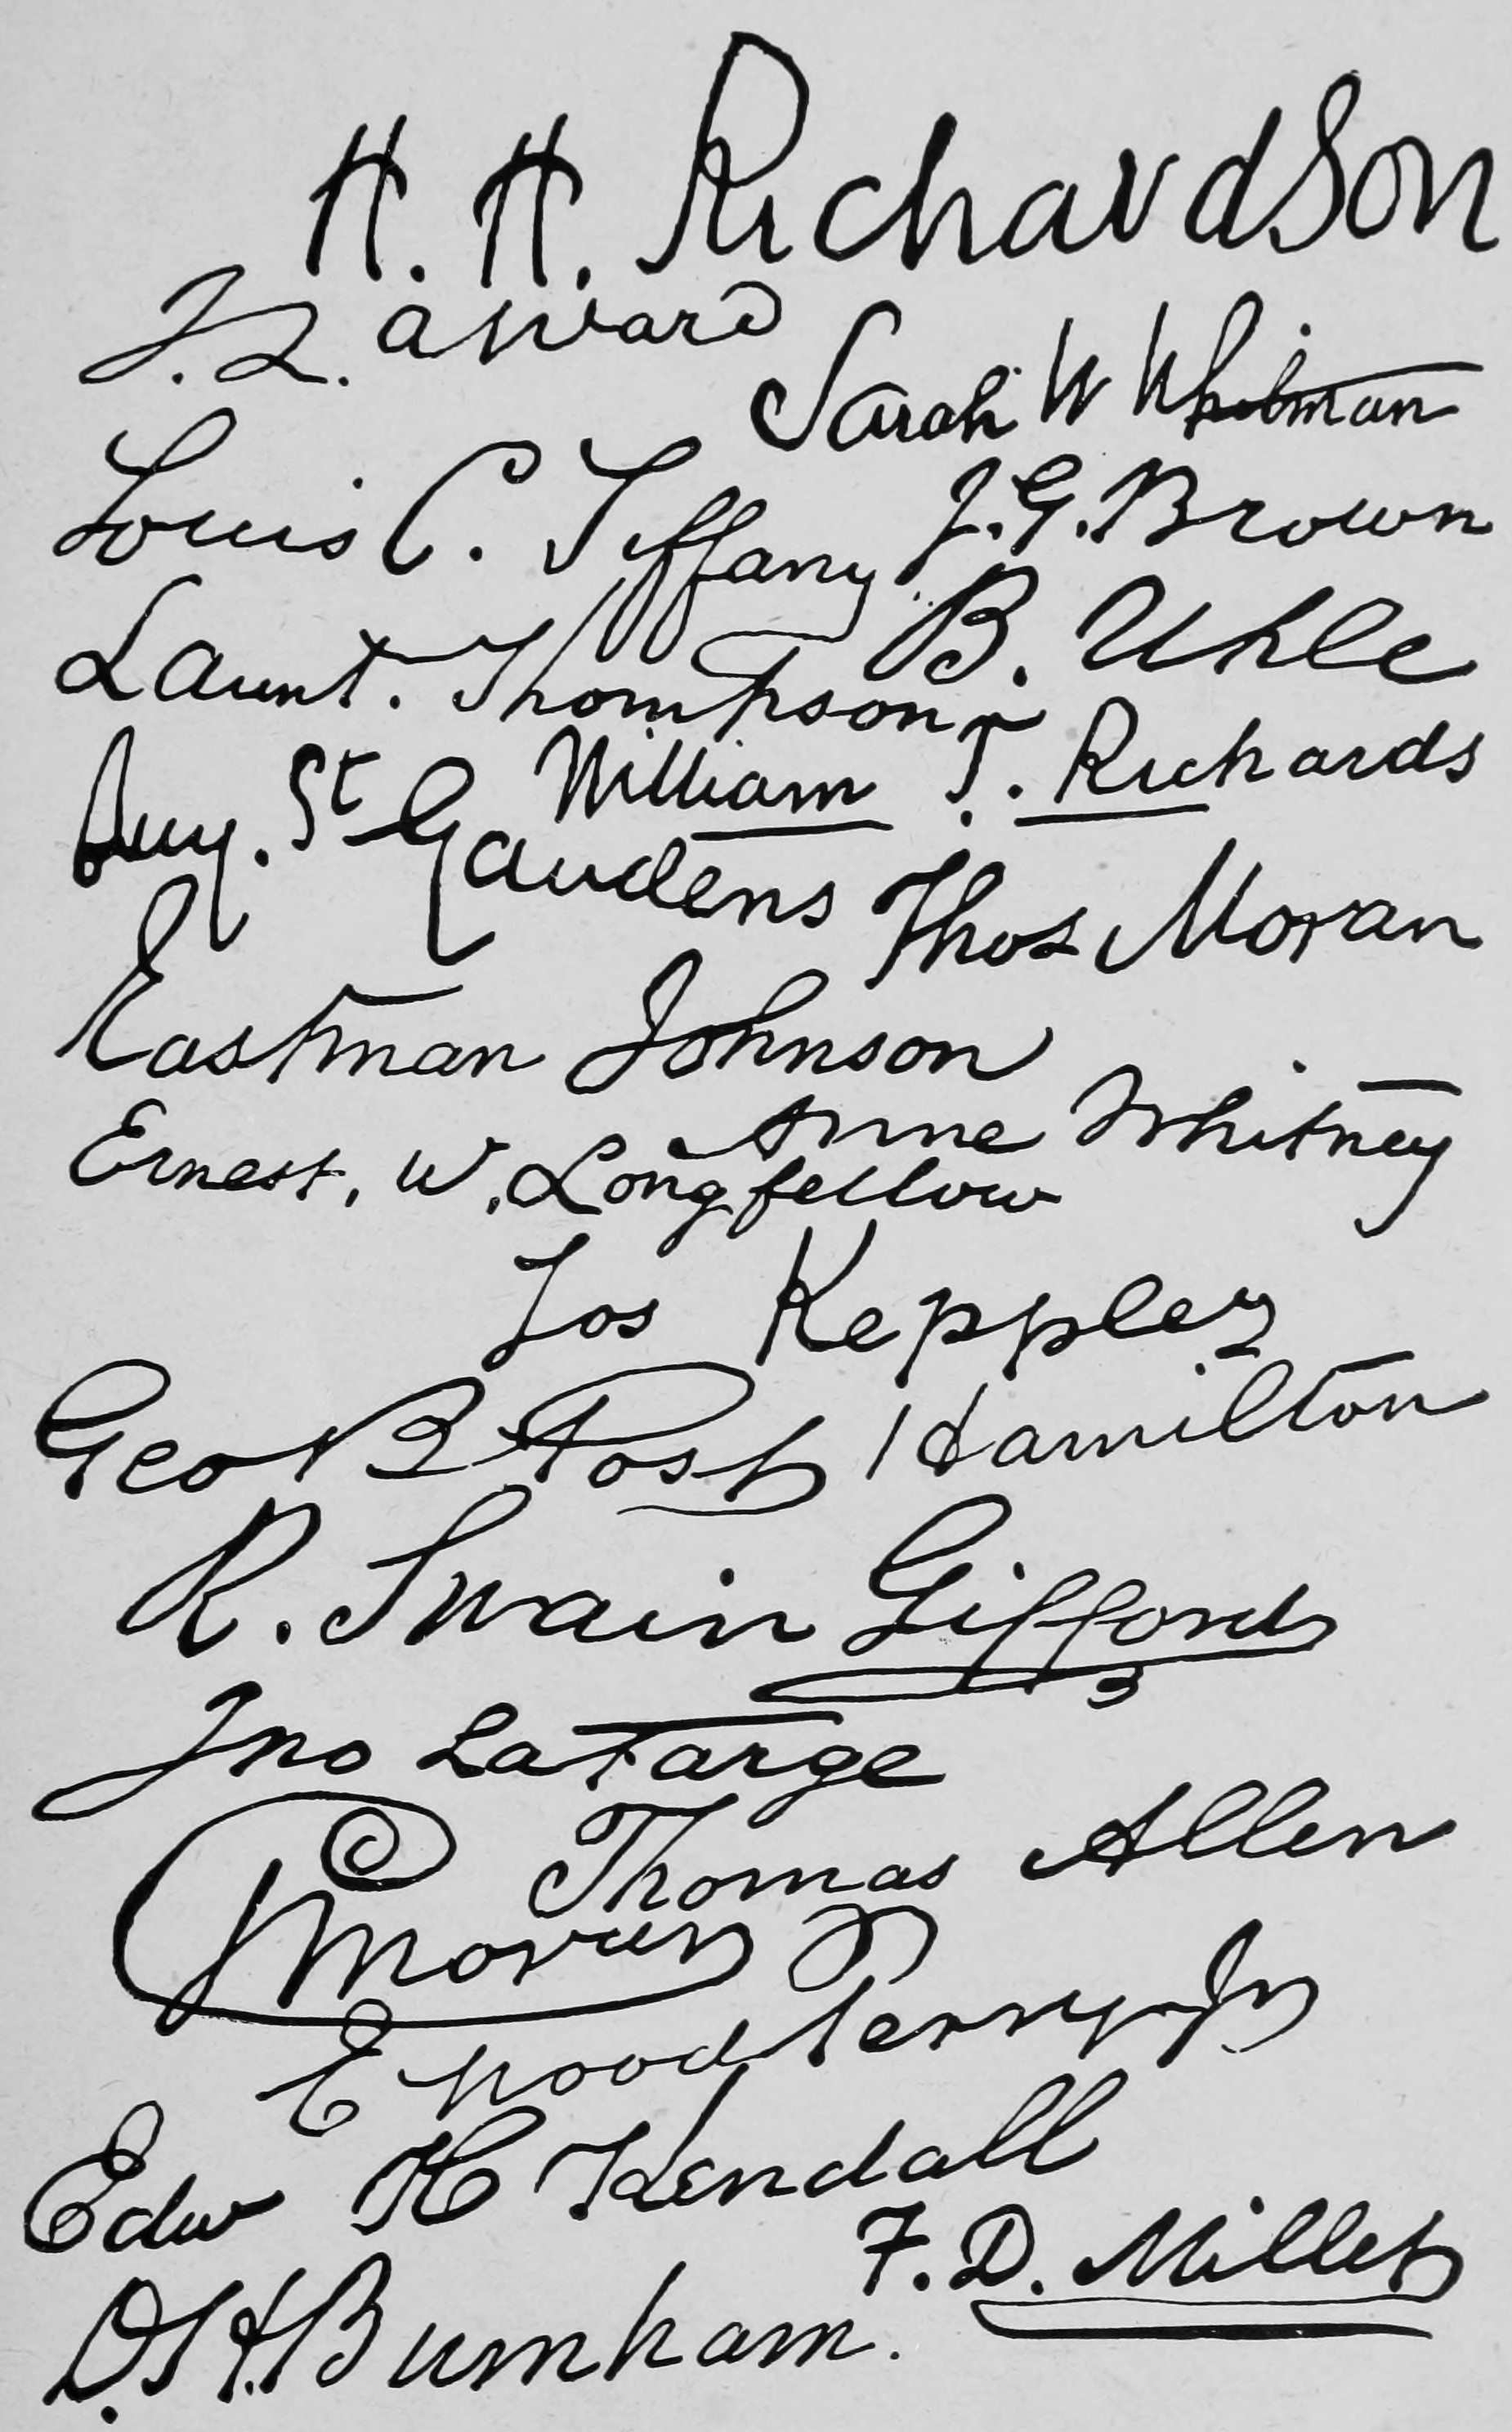 H. H. Richardson
J. Q. A Ward
Sarah W Whitman
Louis C. Tiffany
J. G. Brown
B. Uhle
Launt. Thompson
William T. Richards
Aug. St Gaudens
Thos Moran
Eastman Johnson
Anne Whitney
Ernest. W. Longfellow
Jos Keppler
Geo B Post
Hamilton
R. Swain Gifford
Jno LaFarge
Thomas Allen
Moran
E Wood Perry Jr
Edw H Kendall
F. D. Millet
D. H. Burnham.